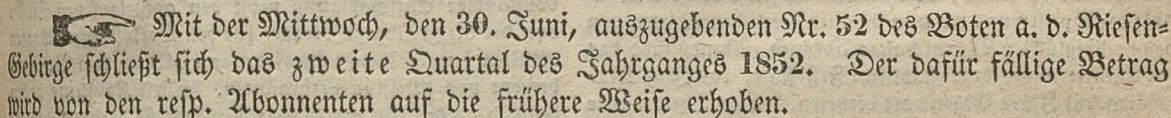 ☞ Mit der Mittwoch, den 30. Juni, auszugebenden Nr. 52 des Boten a. d. Riesen-
Gebirge schließt sich das zweite Quartal des Jahrganges 1852. Der dafür fällige Betrag
wird von den resp. Abonnenten auf die frühere Weise erhoben.